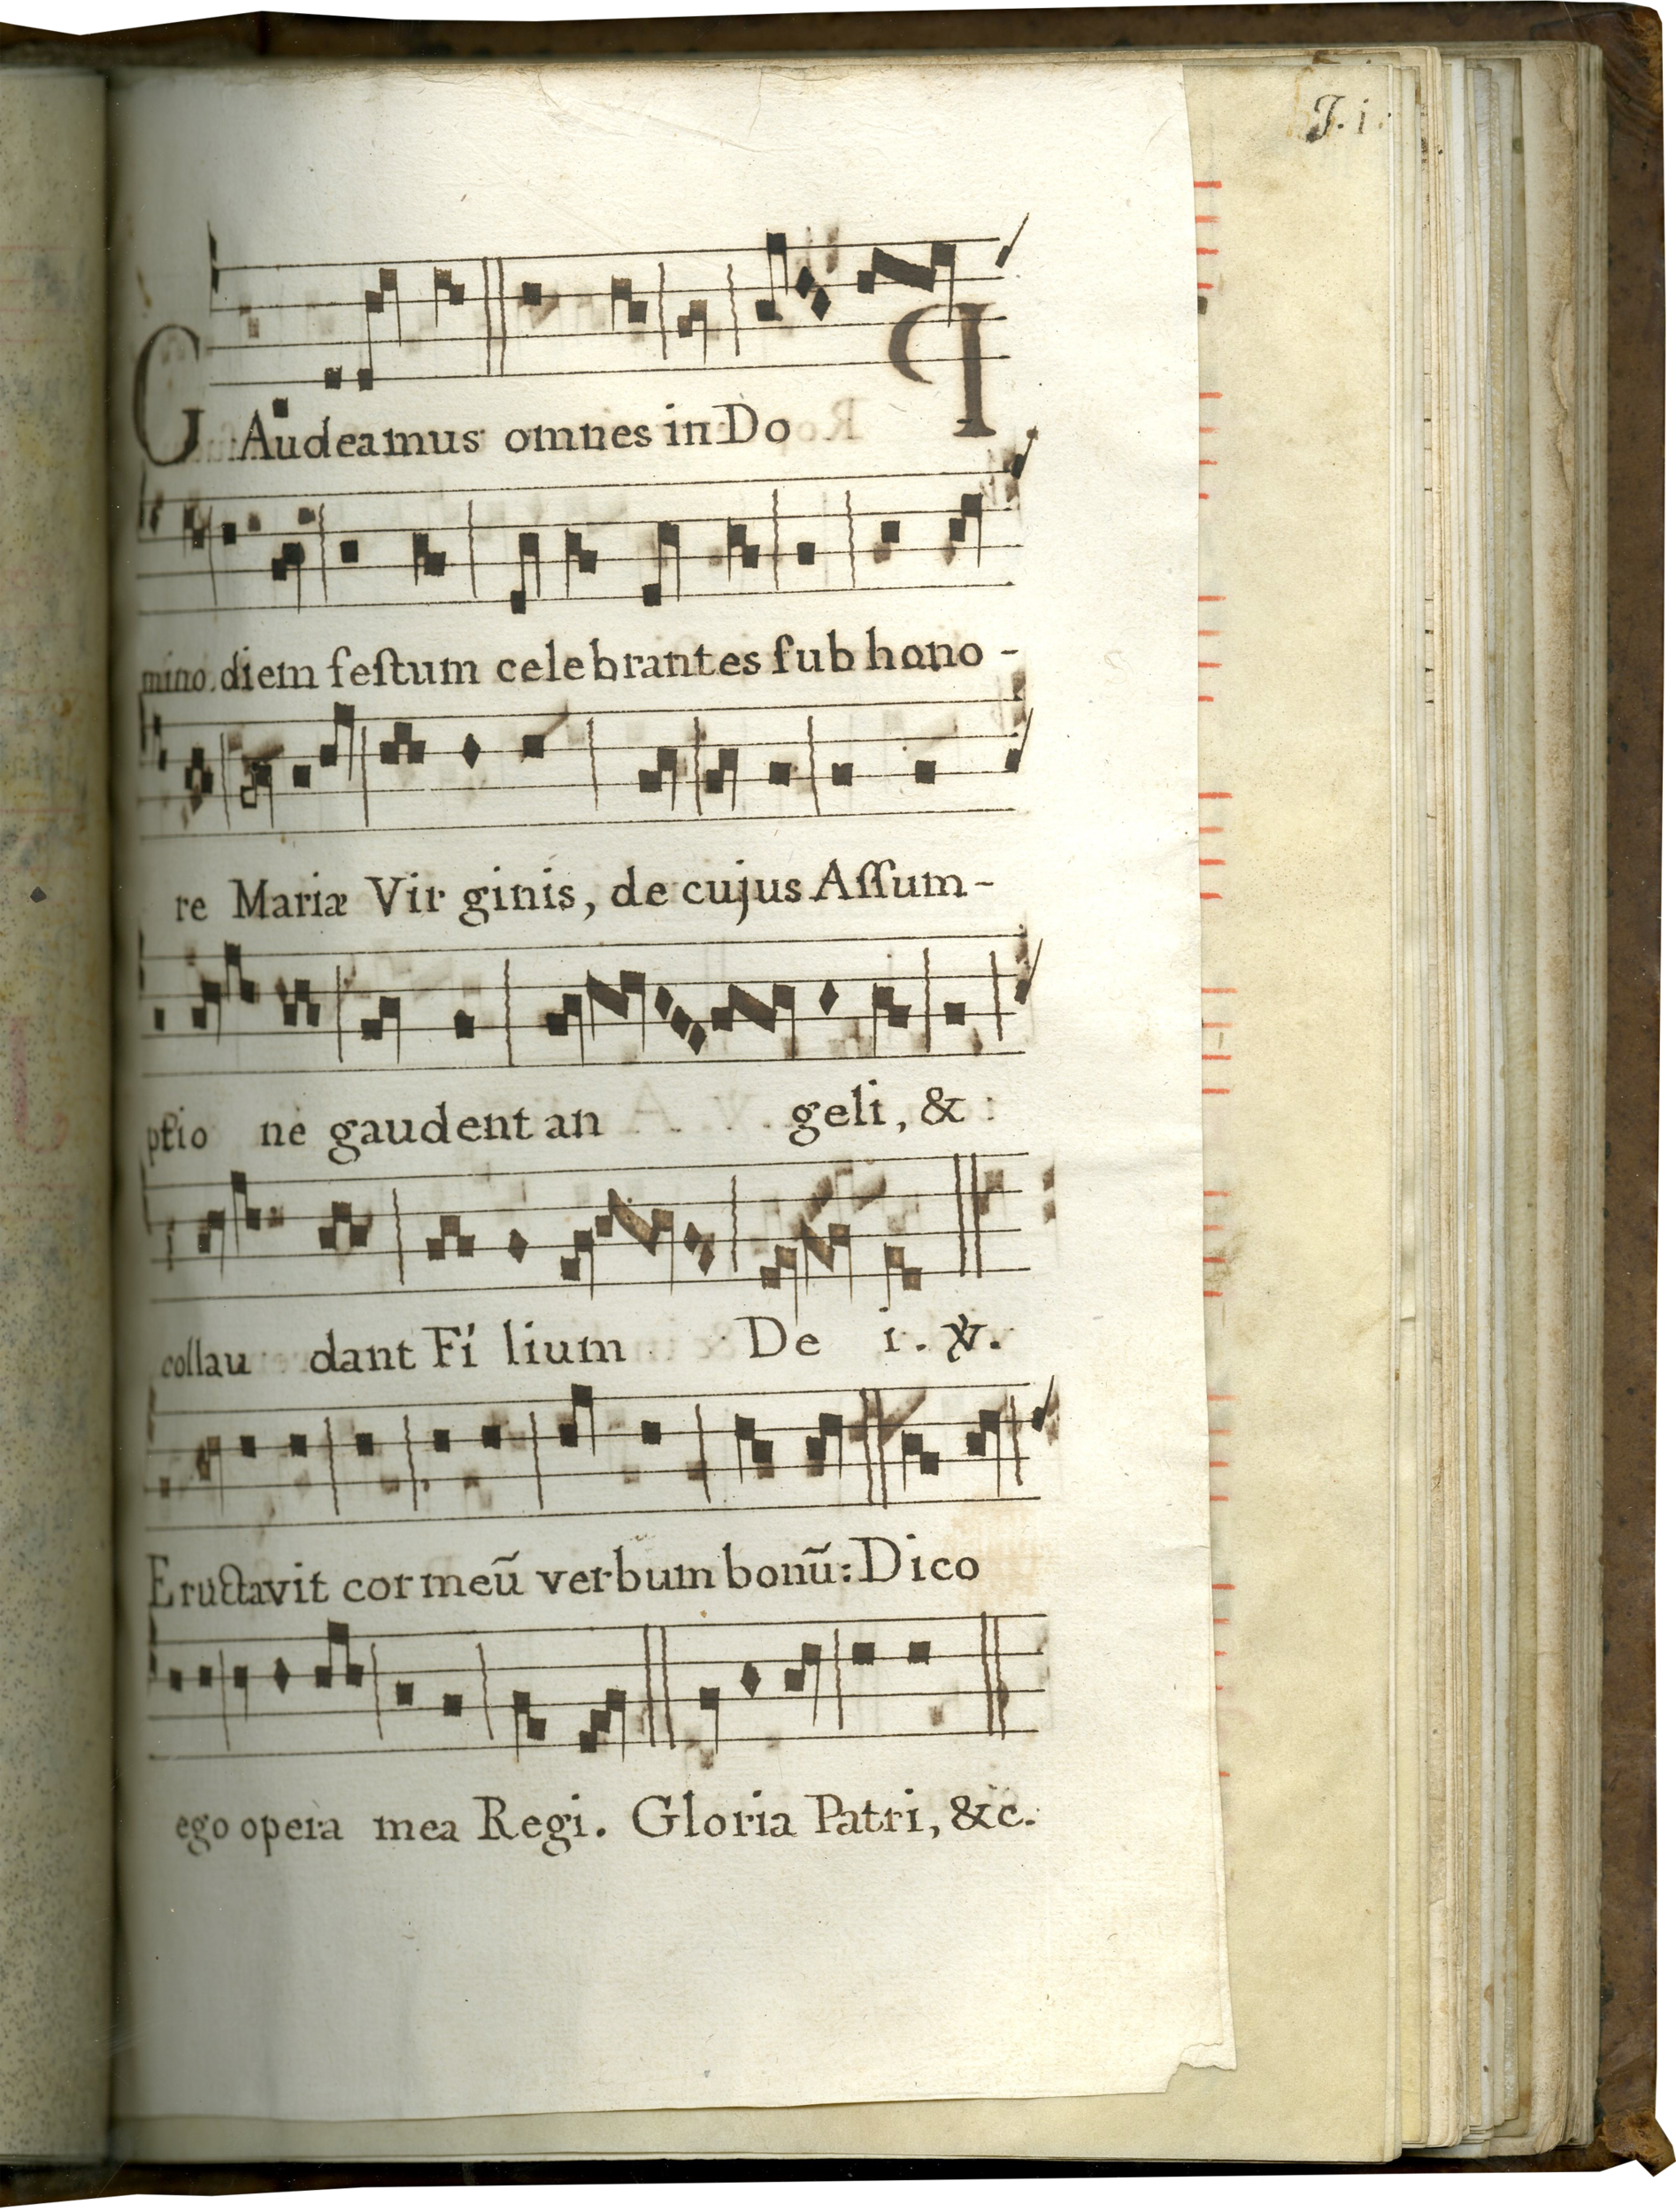 J. i.
GAudeamus omnes in Do
mino. diem feſtum celebrantes ſub hono -
re Mariæ Vir ginis, de cujus Aſſum -
ptio ne gaudent an geli, & :
collau dant Fí lium De i. ℣.
Eructavit cor meū verbum bonū: Dico
ego opera mea Regi. Gloria Patri, &c.